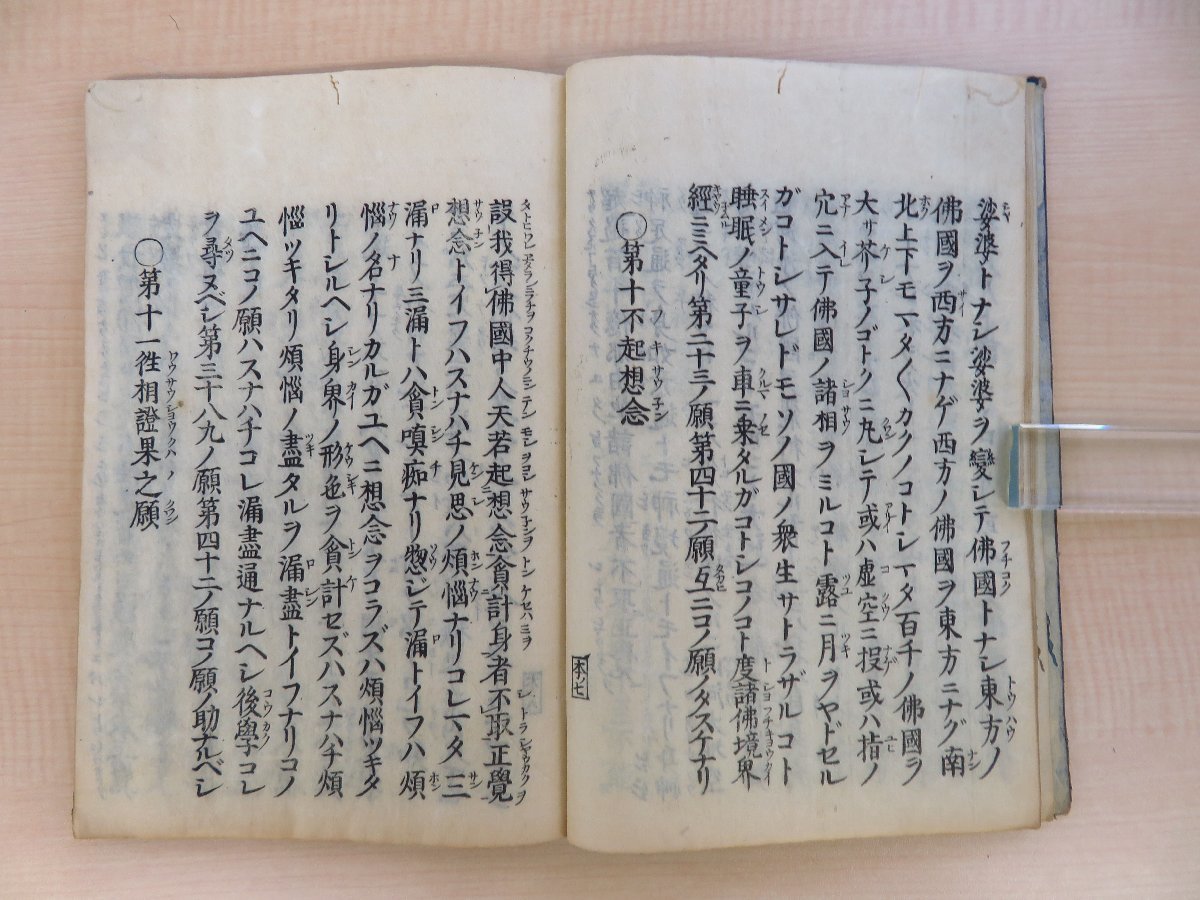 娑婆トナシ娑婆ヲ變シテ佛國トナシ東方ノ
佛國ヲ西方ニナゲ西方ノ佛國ヲ東方ニナグ南
北上下モマタ〱カクノコトシマタ百千ノ佛國ヲ
大サ芥子ノゴトクニ丸シテ或ハ虚空ニ投或ハ指ノ
穴ニ入テ佛國ノ諸相ヲミルコト露ニ月ヲヤドセル
ガコトシサレドモソノ國ノ衆生サトラザルコト
睡眠ノ童子ヲ車ニ乗タルガコトシコノコト度諸佛境界
經ニミヘタリ第二十三ノ願第四十二ノ願互ニコノ願ノタスケナリ
○第十不起想念
本ノ七
設我得佛國中人天若起想念貪計身者不取正覺
想念トイフハスナハチ見思ノ煩惱ナリコレマタ三
漏ナリ三漏トハ貪嗔痴ナリ惣ジテ漏トイフハ煩
惱ノ名ナリカルガユヘニ想念ヲコラズハ煩惱ツキタ
リトシルヘシ身界ノ形色ヲ貪計セズハスナハチ煩
惱ツキタリ煩惱ノ盡タルヲ漏盡トイフナリコノ
ユヘニコノ願ハスナハチコレ漏盡通ナルヘシ後學コレ
ヲ尋ヌベシ第三十八九ノ願第四十二ノ願コノ願ノ助ナルベシ
○第十一徃相證果之願